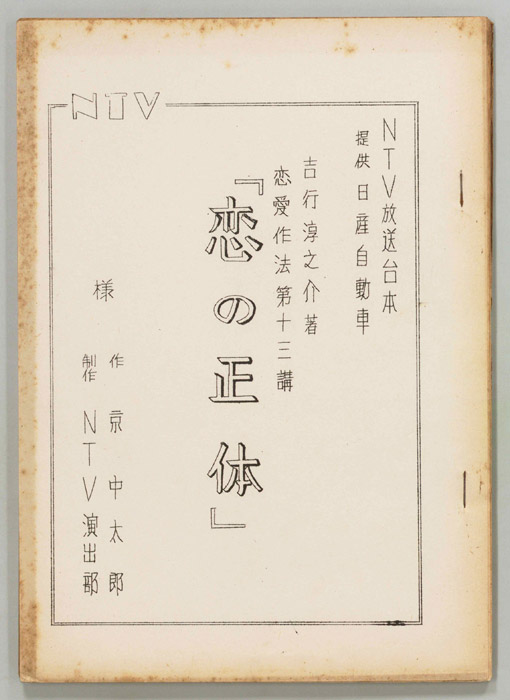 NTV
NTV放送台本
提供 日産自動車
吉行淳之介著
恋愛作法第十三講
『恋の正体』
様
作 京中太郎
制作 NTV演出部